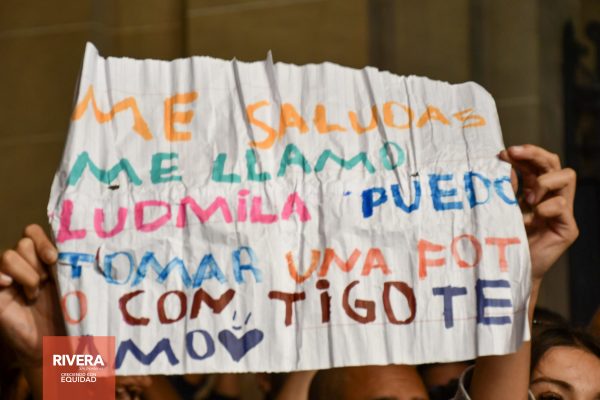 ME ME SALUDAS
ME LLAMO
LUDMILA PUEDO
TOMAR UNA FOT
O CON TIGO TE
AMO
RIVERA
CRECIENDO CON
EQUIDAD